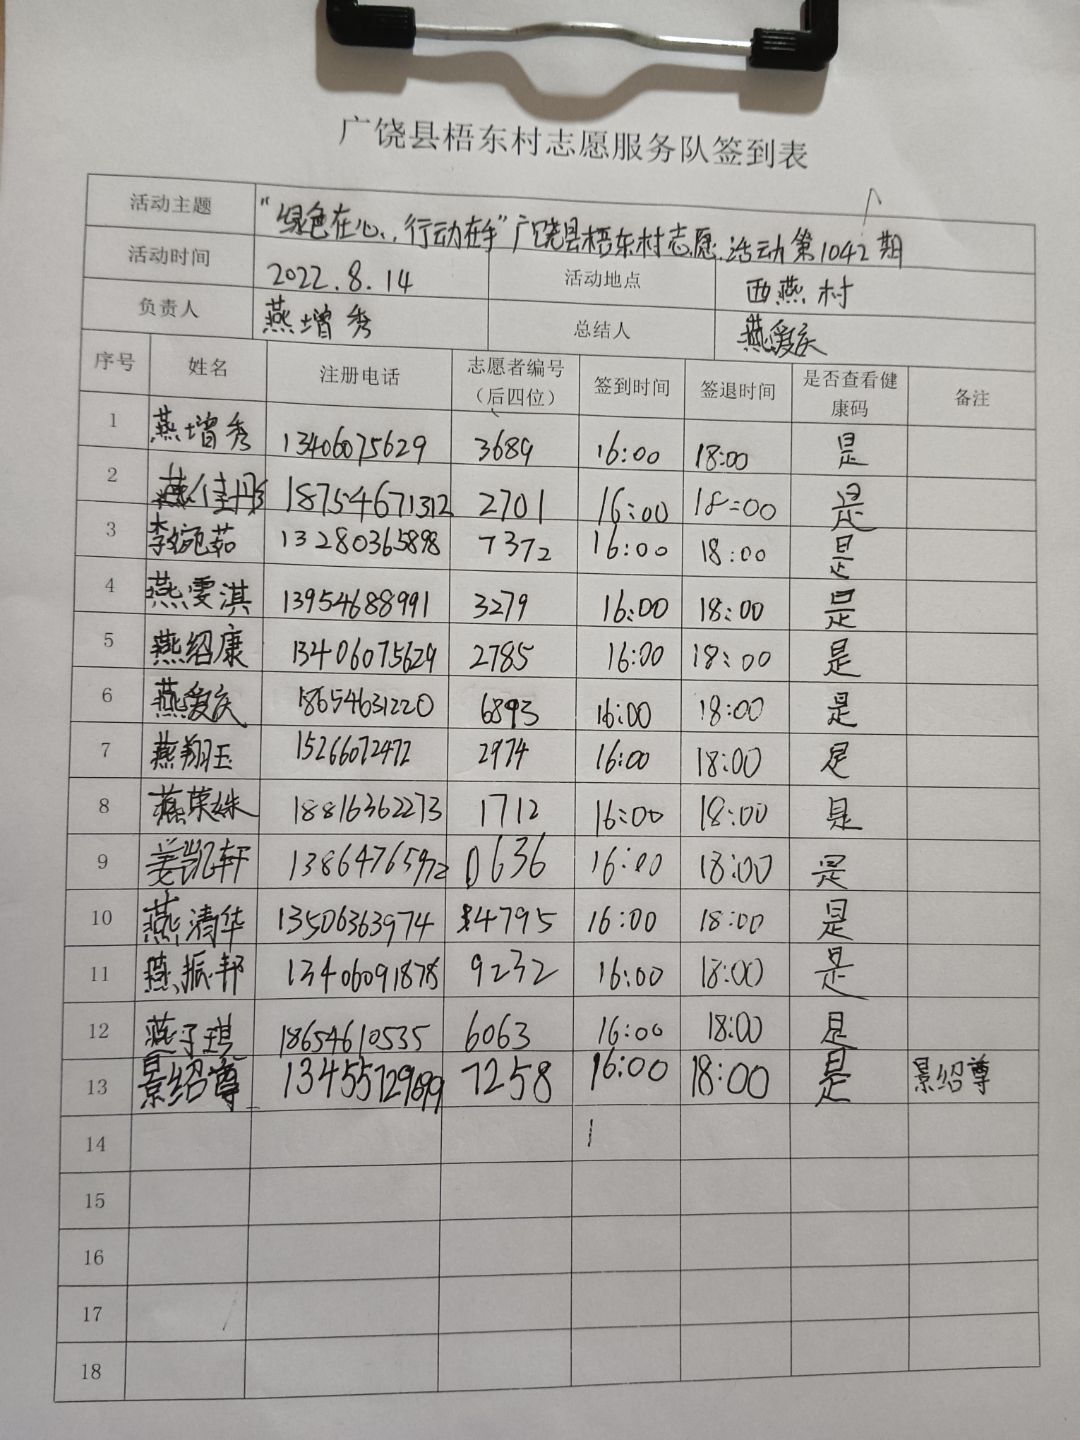 广饶县梧东村志愿服务队签到表
活动主题 “绿色在心、行动在手”广饶县梧东村志愿活动第1042期
活动时间 2022.8.14 活动地点 西燕村
负责人 燕增秀 总结人 燕爱庆
序号 姓名 注册电话 志愿者编号（后四位） 签到时间 签退时间 是否查看健康码 备注
1 燕增秀 13406075629 3689 16:00 18:00 是
2 燕佳彤 18754671312 2701 16:00 18:00 是
3 李婉茹 13280365898 7372 16:00 18:00 是
4 燕雯淇 13954688991 3279 16:00 18:00 是
5 燕绍康 13406075629 2785 16:00 18:00 是
6 燕爱庆 18654631220 6893 16:00 18:00 是
7 燕翔玉 15266072472 2974 16:00 18:00 是
8 燕荣姝 18816362273 1712 16:00 18:00 是
9 姜凯轩 13864765972 0636 16:00 18:00 是
10 燕清华 13506363974 4795 16:00 18:00 是
11 燕振邦 13406091878 9232 16:00 18:00 是
12 燕子琪 18654610535 6063 16:00 18:00 是
13 景绍尊 7258 16:00 18:00 是 景绍尊
14
15
16
17
18